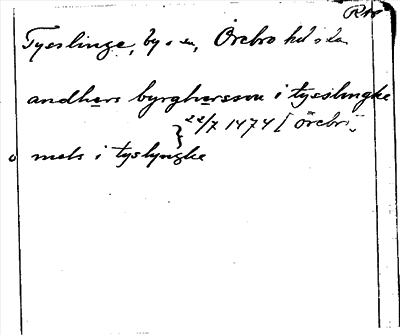 RAP
Tysslinge, by o sn, Örebro hd o län
andhers byrghersson i tysslingke
22/7 1474 [ Örebro
o mals i tyslyngke